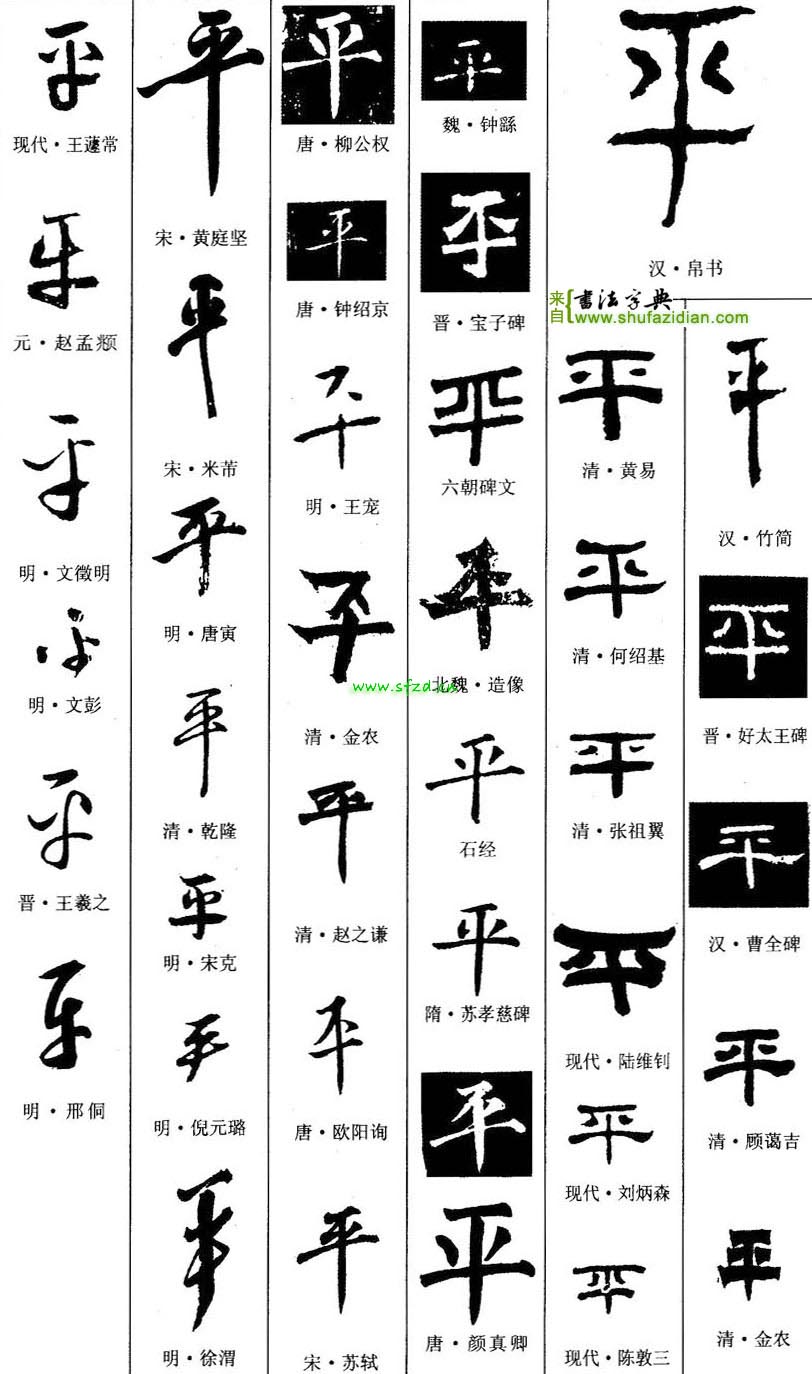 平
现代·王蘧常
平
元·赵孟頫
平
明·文徵明
平
明·文彭
平
晋·王羲之
平
明·邢侗
平
宋·黄庭坚
平
宋·米芾
平
明·唐寅
平
清·乾隆
平
明·宋克
平
明·倪元璐
平
明·徐渭
平
唐·柳公权
平
唐·钟绍京
平
明·王宠
平
清·金农
平
清·赵之谦
平
唐·欧阳询
平
宋·苏轼
平
魏·钟繇
平
晋·宝子碑
平
六朝碑文
平
北魏·造像
平
石经
平
隋·苏孝慈碑
平
平
唐·颜真卿
平
汉·帛书
来自{書法字典
www.shufazidian.com
平
清·黄易
平
清·何绍基
平
清·张祖翼
平
现代·陆维钊
平
现代·刘炳森
平
现代·陈敦三
平
汉·竹简
平
晋·好太王碑
平
汉·曹全碑
平
清·顾蔼吉
平
清·金农